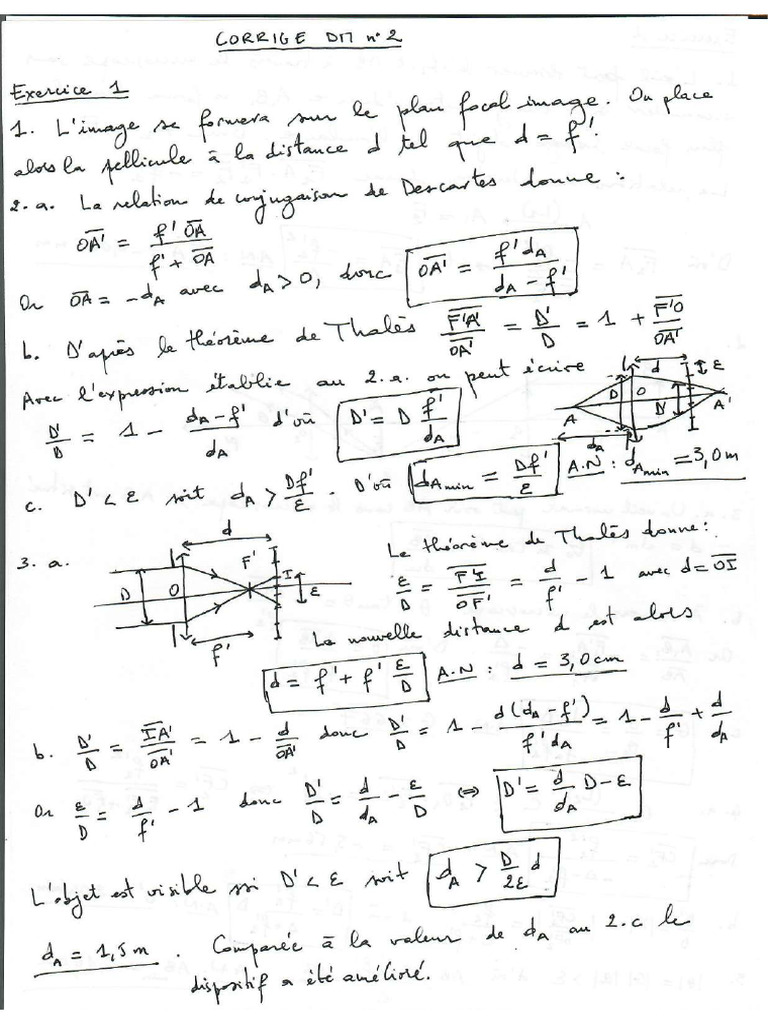 CORRIGE DM n°2
Exercice 1
1. L'image se formera sur le plan focal image. On place
alors la pellicule à la distance d tel que d = f'.
2.a. La relation de conjugaison de Descartes donne :
OA' = f' OA / (f' + OA)
Or OA = -dA avec dA > 0, donc OA' = f' dA / (dA - f')
b. D'après le théorème de Thalès F'A' / OA' = D' / D = 1 + F'O / OA'
Avec l'expression établie au 2.a. on peut écrire
D' / D = 1 - (dA - f') / dA d'où D' = D f' / dA
d ε D O D' A A' dA
c. D' < ε soit dA > Df' / ε . D'où dAmin = Df' / ε A.N : dAmin = 3,0 m
3. a.
d D O F' I ε f'
Le théorème de Thalès donne :
ε / D = F'I / OF' = d / f' - 1 avec d = OI
La nouvelle distance d est alors
d = f' + f' ε / D A.N : d = 3,0 cm
b. D' / D = IA' / OA' = 1 - d / OA' donc D' / D = 1 - d(dA - f') / f' dA = 1 - d / f' + d / dA
Or ε / D = d / f' - 1 donc D' / D = d / dA - ε / D ⇔ D' = d / dA D - ε
L'objet est visible ssi D' < ε soit dA > D / 2ε d
dA = 1,5 m . Comparée à la valeur de dA au 2.c le
dispositif a été amélioré.